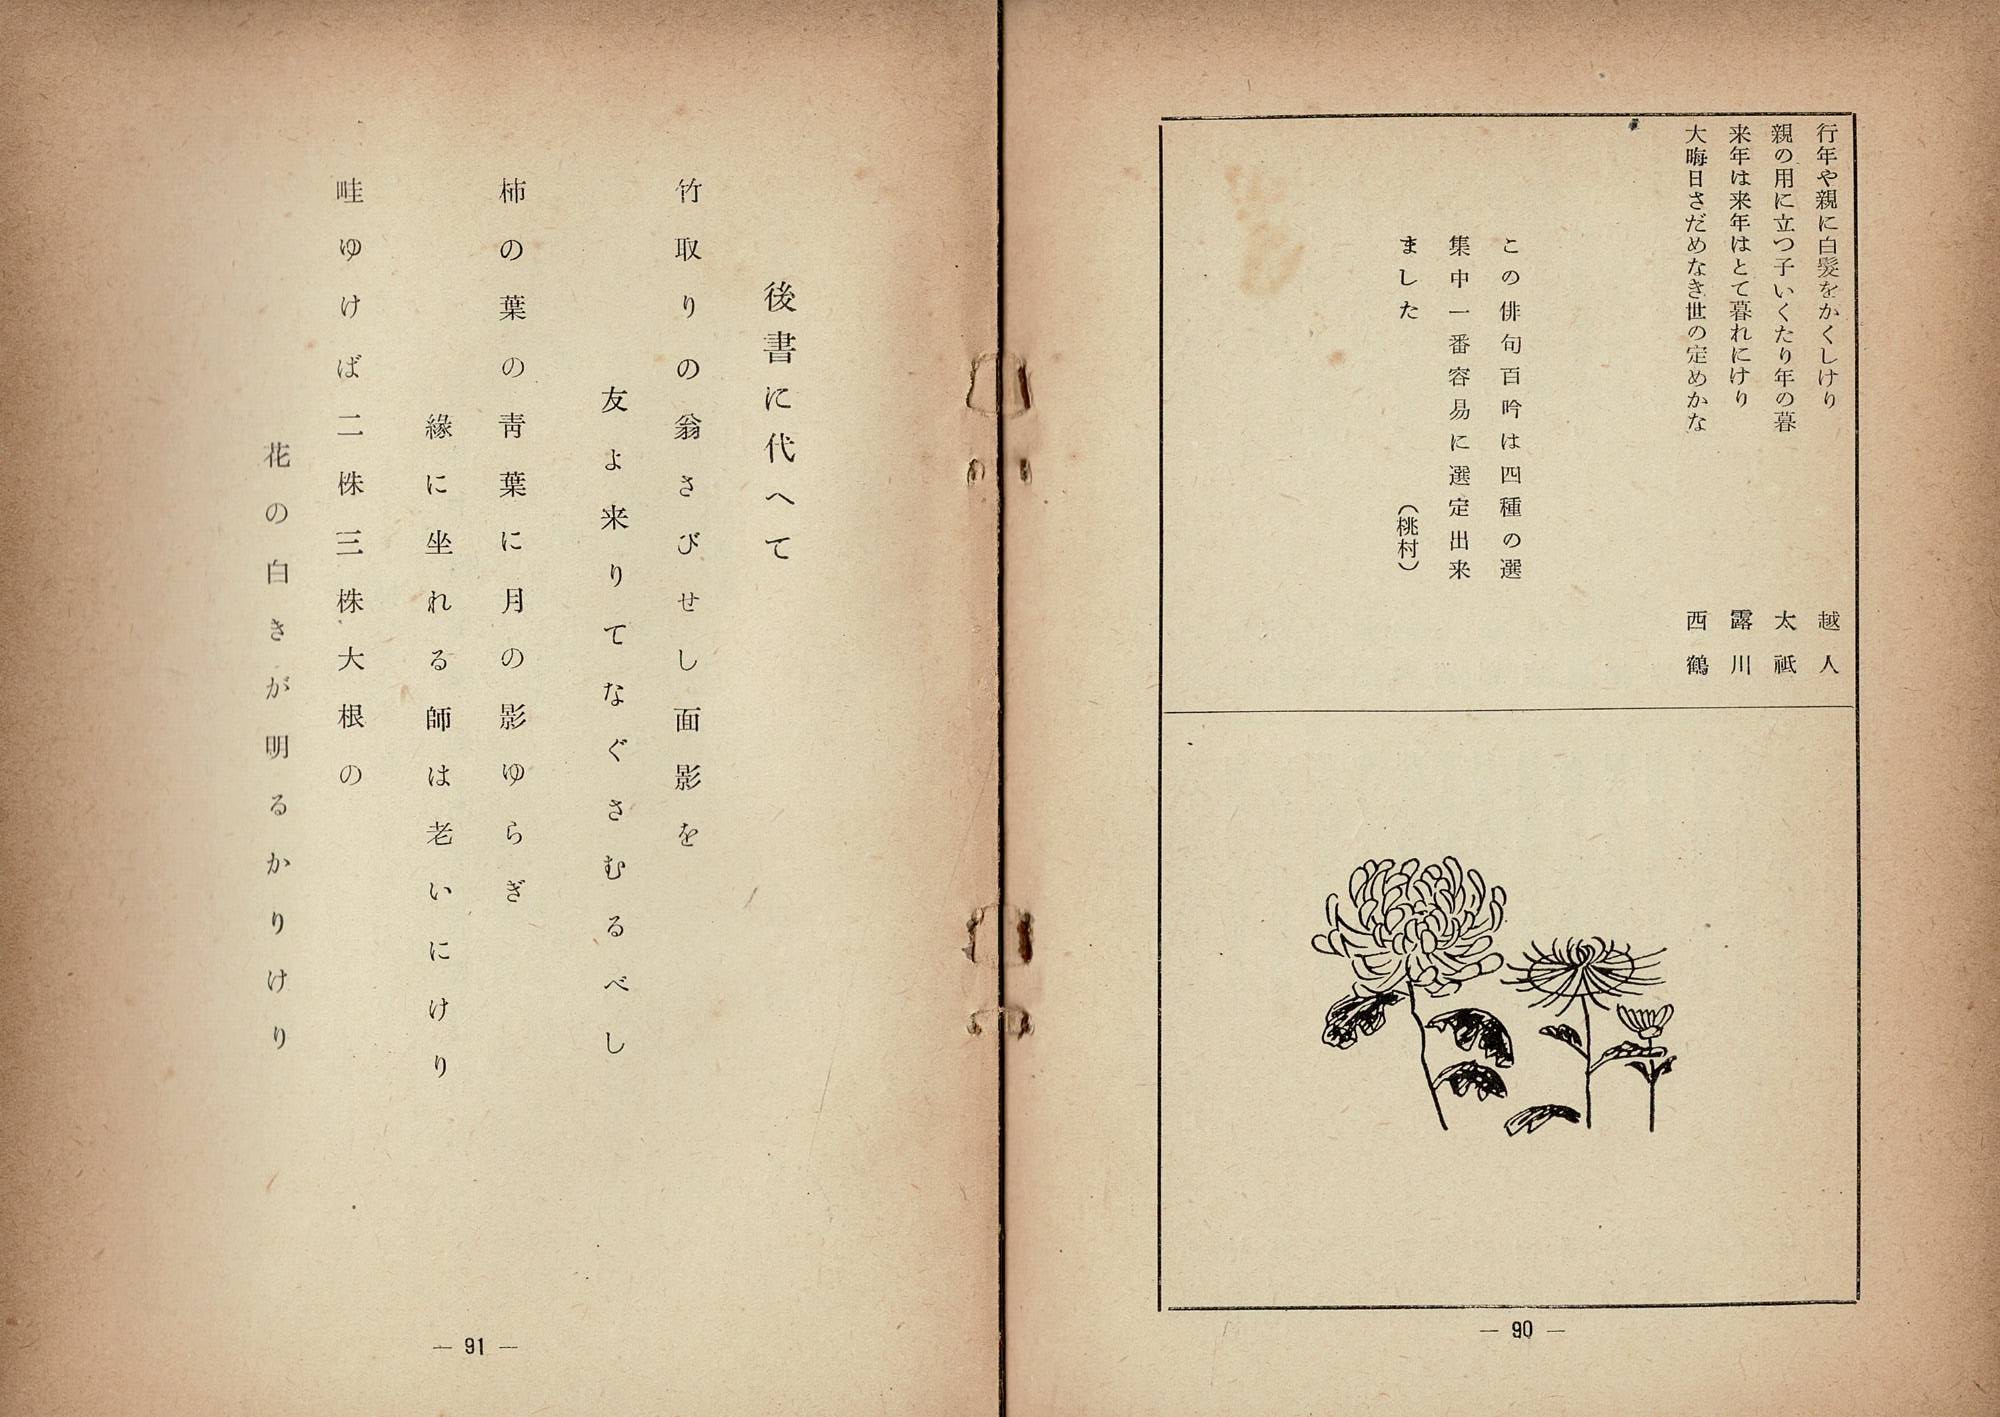 行年や親に白髪をかくしけり 越人
親の用に立つ子いくたり年の暮 太祗
来年は来年はとて暮れにけり 露川
大晦日さだめなき世の定めかな 西鶴
この俳句百吟は四種の選
集中一番容易に選定出来
ました (桃村)
— 90 —
後書に代へて
竹取りの翁さびせし面影を
友よ来りてなぐさむるべし
柿の葉の靑葉に月の影ゆらぎ
緣に坐れる師は老いにけり
畦ゆけば二株三株大根の
花の白きが明るかりけり
— 91 —